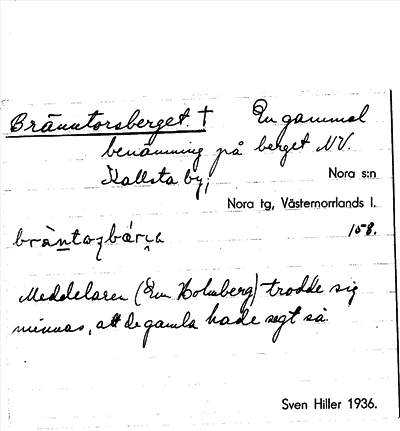 Bränntorsberget. † En gammal
benämning på berget NV.
Kallsta by; Nora s:n
Nora tg, Västernorrlands l.
158.
Meddelaren (Em Holmberg) trodde sig
minnas, att de gamla hade sagt så.
Sven Hiller 1936.